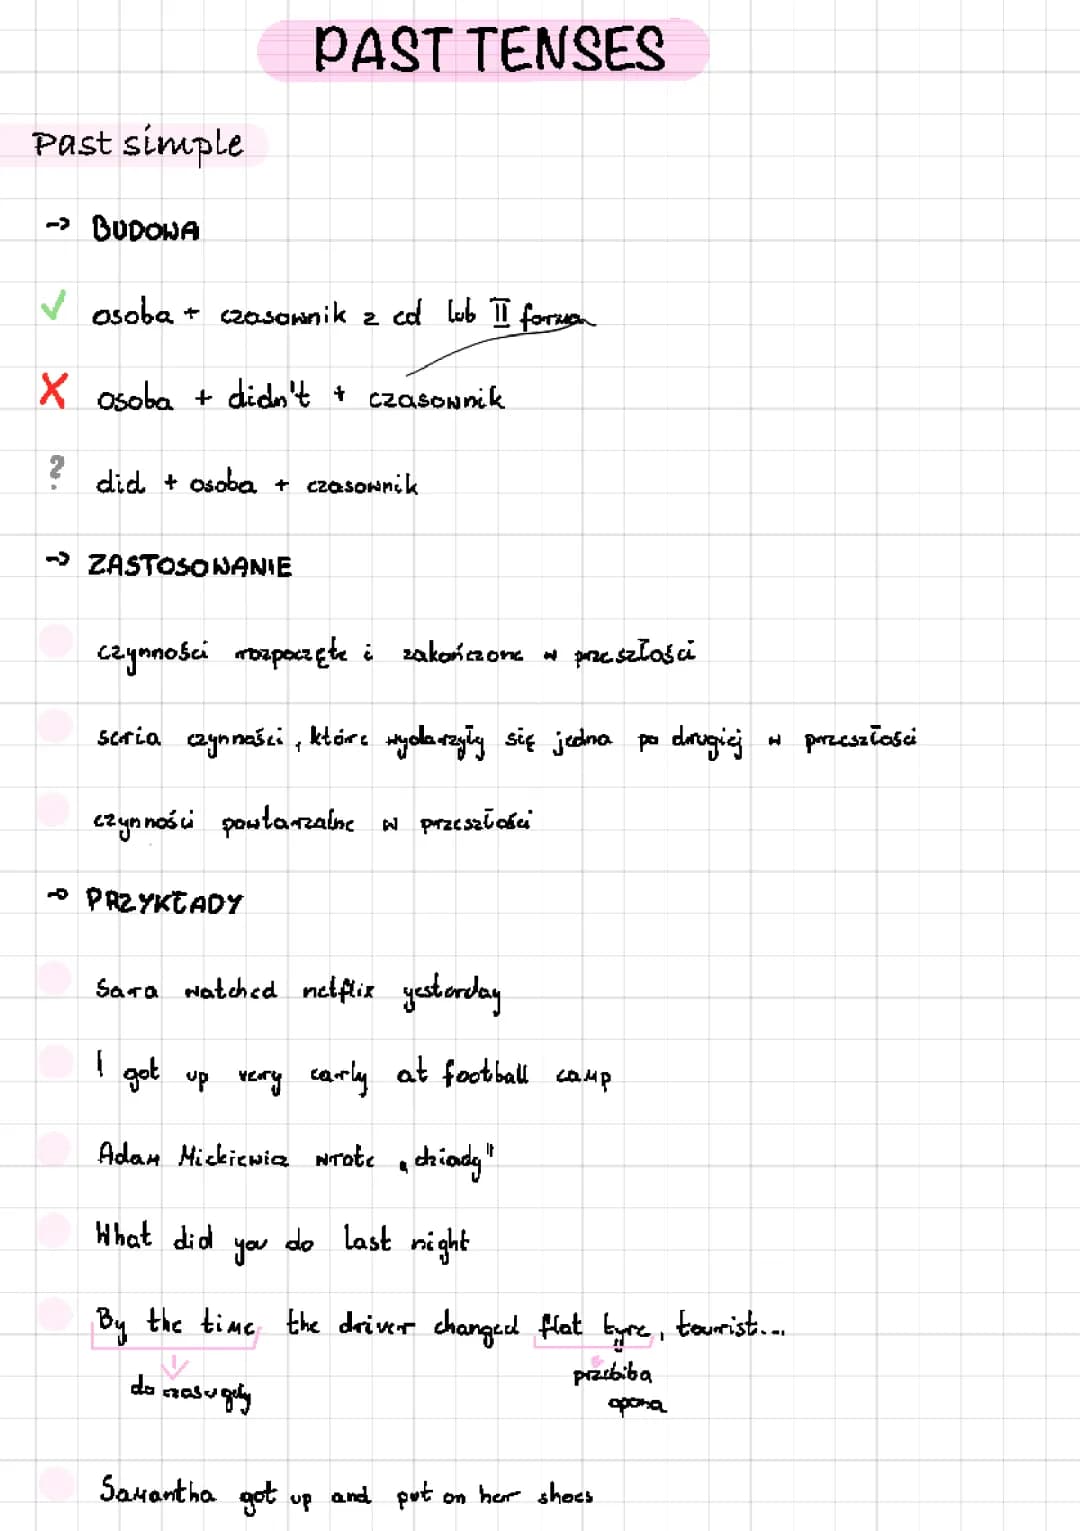 PAST TENSES
Past simple
→ BUDOWA
✓ osoba + czasownik z ed lub II forma
X osoba + didn't + czasownik
? did + osoba + czasownik
→ ZASTOSOWANIE
czynności rozpoczęte i zakończone w przeszłości
seria czynności, które wydarzyły się jedna po drugiej w przeszłości
czynności powtarzalne w przeszłości
→ PRZYKŁADY
Sara watched netflix yesterday
I got up very early at football camp
Adam Mickiewicz wrote „dziady"
What did you do last night
By the time, the driver changed flat tyre, tourist...
do czasu gdy
przebita
opona
Samantha got up and put on her shoes